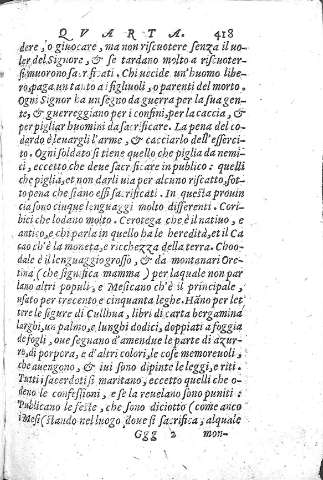 QVARTA. 418
dere, o giuocare, ma non riscuotere senza il uo-
ler del Signore, & se tardano molto a riscuoter-
si muorono sacrificati. Chi uccide un'huomo libe-
ro, paga un tanto a i figliuoli, o parenti del morto.
Ogni Signor ha un segno da guerra per la sua gen-
te, & guerreggiano per i confini, per la caccia, &
per pigliar huomini da sacrificare. La pena del co-
dardo è leuargli l'arme, & cacciarlo dell'esserci-
to. Ogni soldato si tiene quello che piglia da nemi-
ci, eccetto che deue sacrificare in publico: quelli
che piglia, et non darli uia per alcuno riscatto, sot-
to pena che siano essi sacrificati. In questa prouin
cia sono cinque lenguaggi molto differenti. Cori-
bici che lodano molto. Cerotega che è il natiuo, e
antico, e chi parla in quello ha le heredità, et il Ca
cao ch'è la moneta, e ricchezza della terra. Choo-
dale è il lenguaggio grosso, & da montanari Ore-
tina (che significa mamma) per la quale non par
lano altri populi, e Mesicano ch'è il principale,
usato per trecento e cinquanta leghe. Hãno per let
tere le figure di Cullhua, libri di carta bergamina
larghi, un palmo, e lunghi dodici, doppiati a foggia
de fogli, oue segnano d'amendue le parte di azur-
ro, di porpora, e d'altri colori, le cose memoreuoli,
che auengono, & iui sono dipinte le leggi, e riti.
Tutti i sacerdoti si maritano, eccetto quelli che o-
deno le confessioni, e se la reuelano sono puniti:
Publicano le feste, che sono diciotto (come anco
i Mesi) stando nel luogo doue si sacrifica, al quale
Ggg 2 mon-